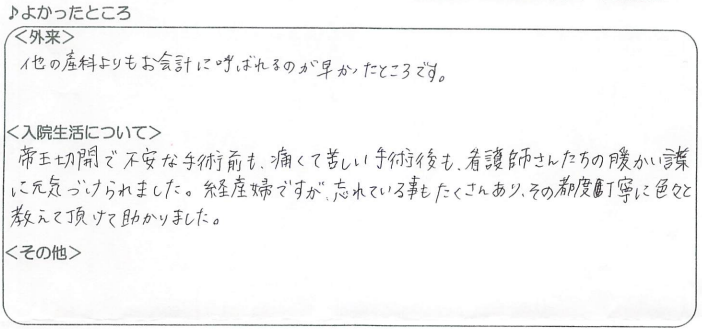 ♪よかったところ
＜外来＞
他の産科よりもお会計に呼ばれるのが早かったところです。
＜入院生活について＞
帝王切開で不安な手術前も、痛くて苦しい手術後も、看護師さんたちの暖かい言葉
に元気づけられました。経産婦ですが、忘れている事もたくさんあり、その都度丁寧に色々と
教えて頂けて助かりました。
＜その他＞